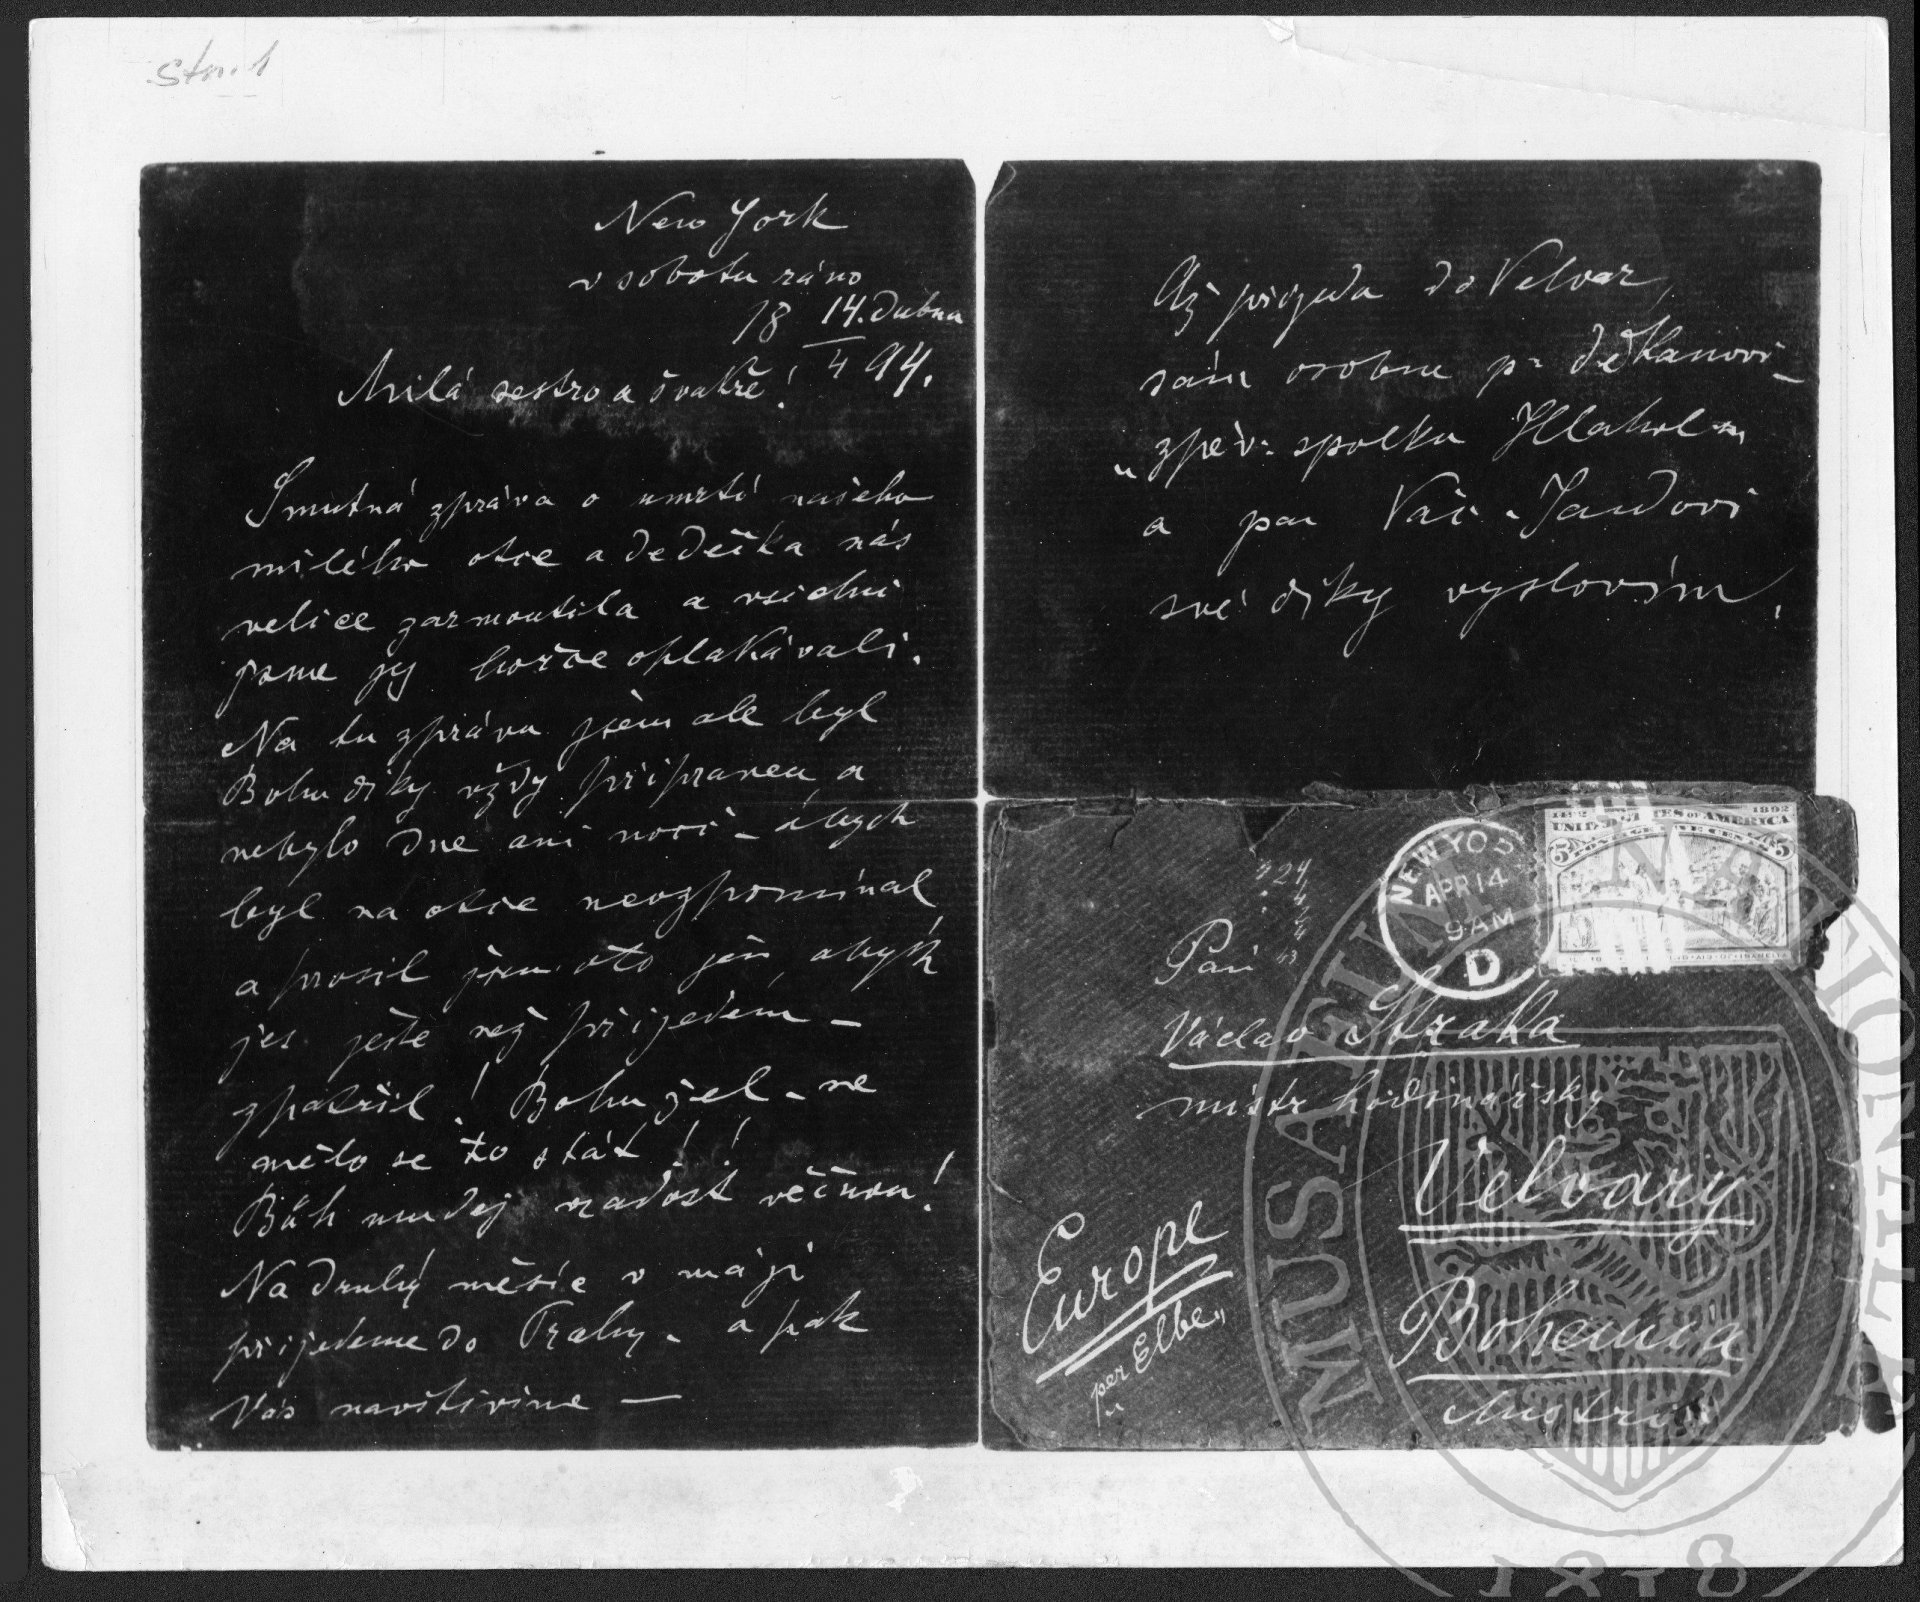 Str. 1
New York
v sobotu ráno
18 14. dubna
4 94.
Milá sestro a švakře!
Smutná zpráva o umrtí našeho
milého otce a dědečka nás
velice zarmoutila a všichni
jsme jej hořce oplakávali.
Na tu zprávu jsem ale byl
Bohu díky vždy připraven a
nebylo dne ani noci – ábych
byl na otce nevzpomínal
a prosil jsem oto jen abych
jej ještě než přijedem –
zpatřil! Bohužel – ne
mělo se to stát!
Bůh mu dej radost věčnou!
Na druhý měsíc v máji
přijedeme do Prahy – a pak
Vás navštívíme –
Až přijedu do Velvar,
sám osobně p. děkanovi –
„zpěv: spolku Hlahol"
a panu Vác. Jandovi
své díky vyslovím.
1492 1892
UNITED STATES OF AMERICA
5 POSTAGE FIVE CENTS 5
NEW YORK
APR 14
9 AM
D
Pan
Václav Straka
mistr hodinářský
Velvary
Bohemia
Austria
Europe
per Elbe„
MUSAEUM NATIONALE
1818